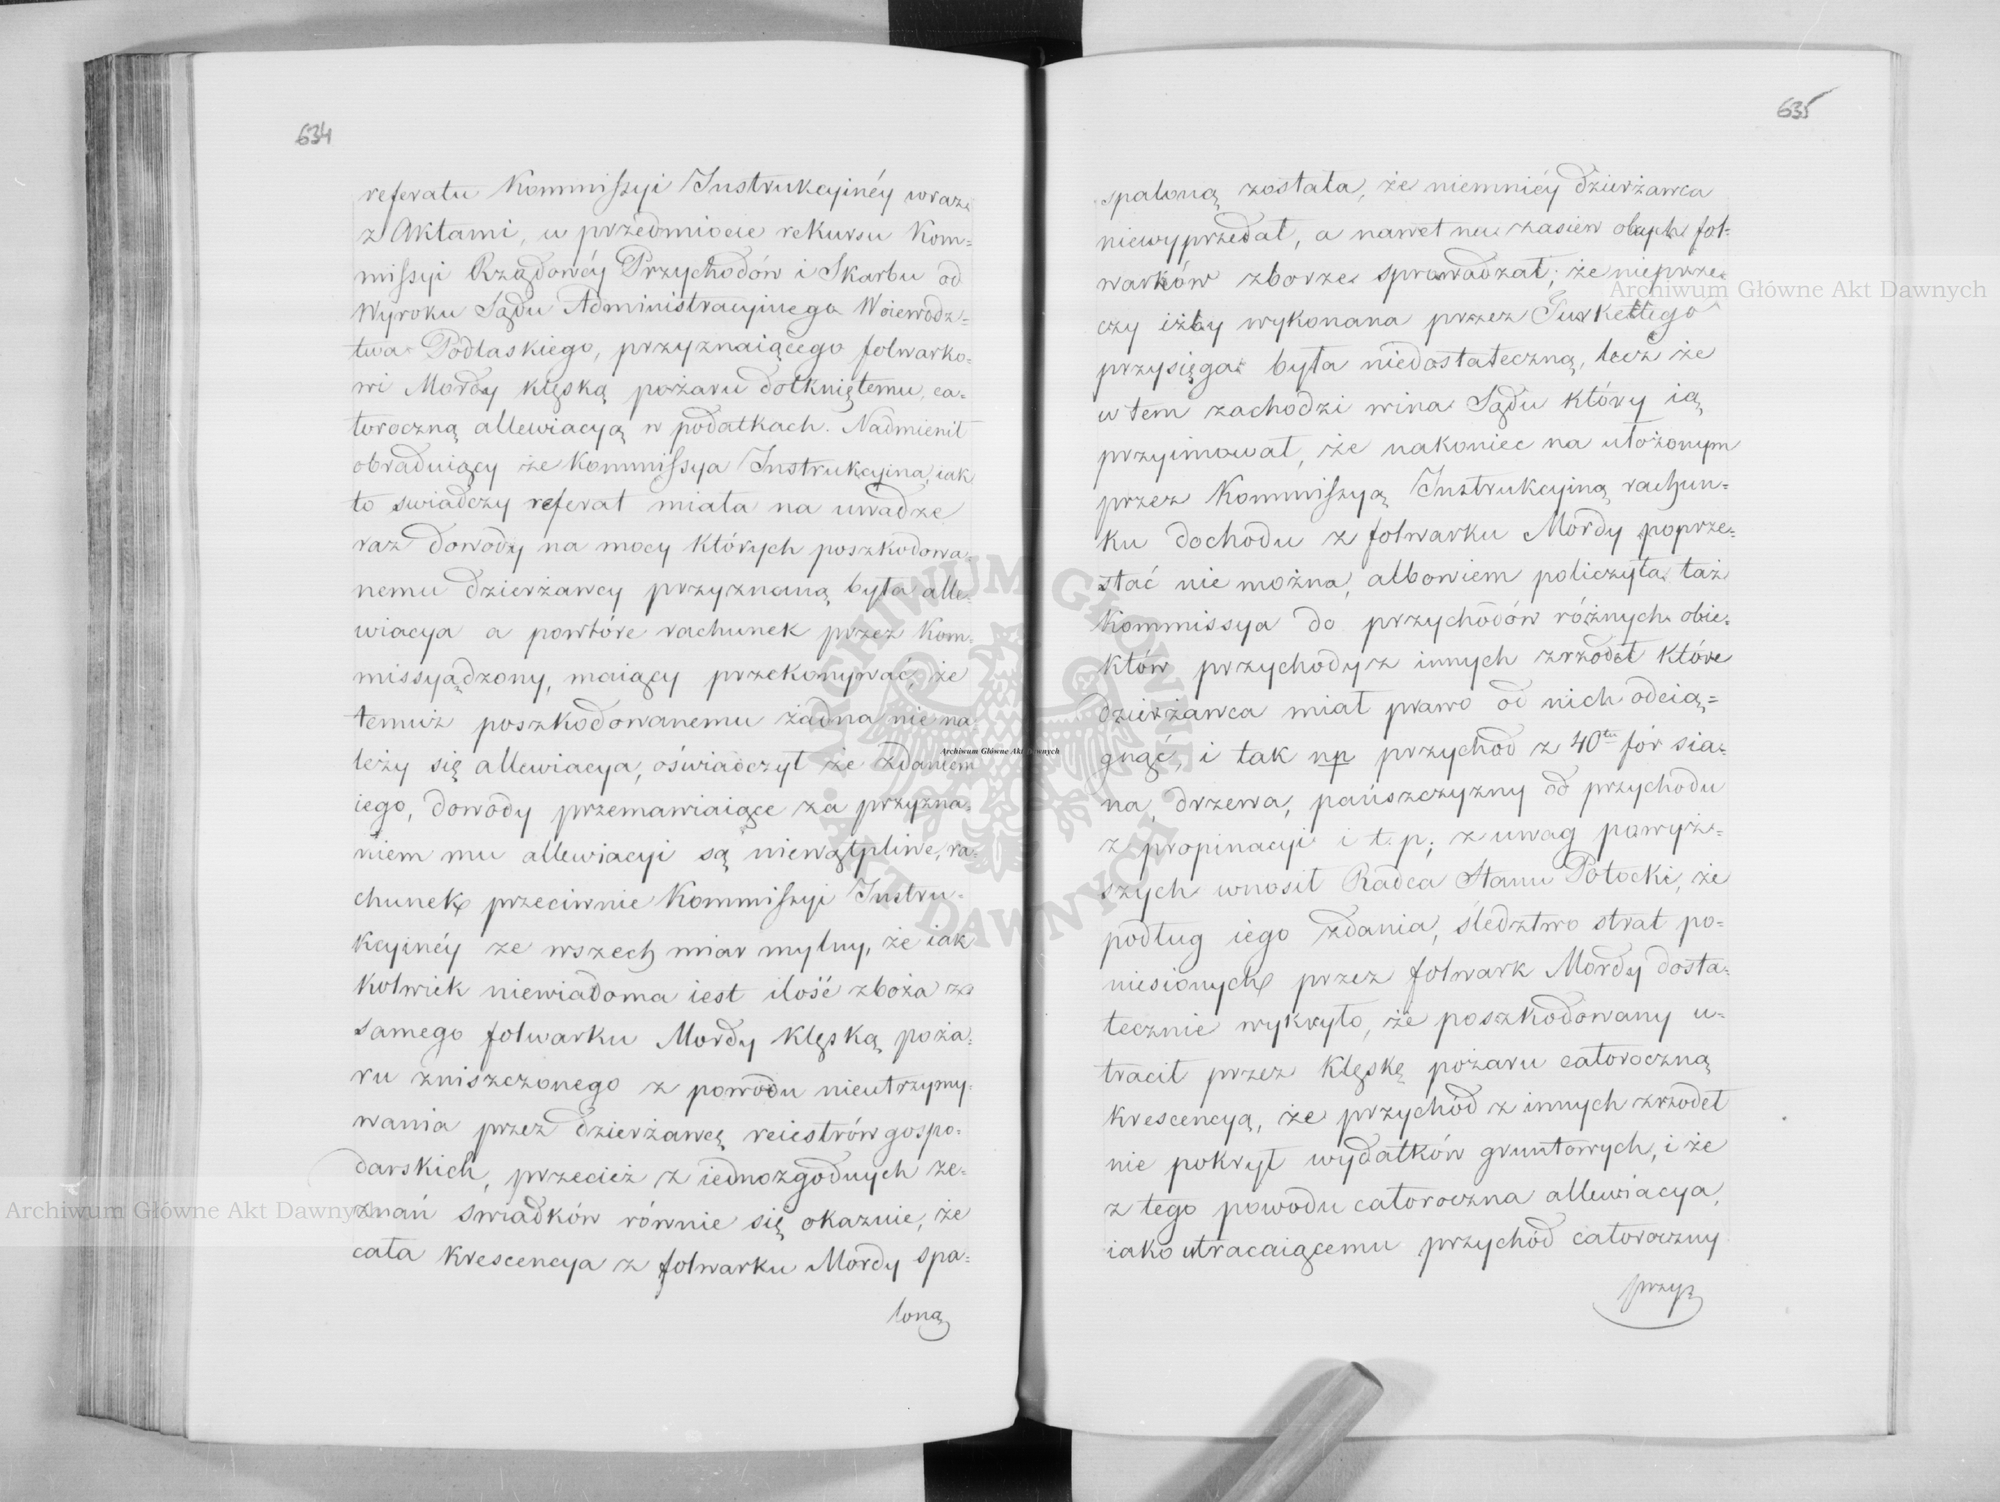 634
referatu Kommissyi Instrukcyinéy wraz
z Aktami, w przedmiocie rekursu Kom=
missyi Rządowéy Przychodów i Skarbu od
Wyroku Sądu Administracyinego Woiewodz=
twa Podlaskiego, przyznaiącego folwarko=
wi Mordy klęską pożaru dotkniętemu, ca=
łoroczną allewiacyą w podatkach. Nadmienił
obraduiący że Kommissya Instrukcyina, iak
to swiadczy referat miała na uwadze
raz dowody na mocy których poszkodowa=
nemu dzierżawcy przyznaną była alle=
wiacya a powtóre rachunek przez Kom=
missyądzony, maiący przekonywać, że
temuż poszkodowanemu żadna nie na=
leży się allewiacya, oświadczył że zdaniem
iego, dowody przemawiaiące za przyzna=
niem mu allewiacyi są niewątpliwe, ra=
chunek przeciwnie Kommissyi Instru=
kcyinéy ze wszech miar mylny, że iak
kolwiek niewiadoma iest ilość zboża z
samego folwarku Mordy klęską poża=
ru zniszczonego z powodu nieutrzymy=
wania przez dzierżawcę reiestrów gospo=
darskich, przecież z iednozgodnych ze=
znań swiadków równie się okazuie, że
cała krescencya z folwarku Mordy spa=
loną
635
spaloną została, że niemniéy dzierżawca
niewyprzedał, a nawet na zasiew obuch fol=
warków zboże sprowadzał; że nieprze
czy iżby wykonana przez Turkettego
przysięga była niedostateczną, lecz że
w tem zachodzi wina Sądu który ią
przyimował, że nakoniec na ułożonym
przez Kommissyą Instrukcyiną rachun=
ku dochodu z folwarku Mordy poprze=
stać nie można, albowiem policzyła taż
Kommissya do przychodów różnych obie=
któw przychody z innych zrzodeł które
dzierżawca miał prawo od nich odcią=
gnąć, i tak np przychod z 40tu for sia=
na, drzewa, pańszczyzny od przychodu
z propinacyi i t.p; z uwag powyż=
szych wnosił Radca Stanu Potocki, że
podług iego zdania, śledztwo strat po=
niesionych przez folwark Mordy dosta=
tecznie wykryło, że poszkodowany u=
tracił przez klęskę pożaru całoroczną
krescencyą, że przychód z innych zrzodeł
nie pokrył wydatków gruntowych, i że
z tego powodu całoroczna allewiacya,
iako utracaiącemu przychód całoroczny
przyz
Archiwum Główne Akt Dawnych
Archiwum Główne Akt Dawnych
Archiwum Główne Akt Dawnych
ARCHIWUM GŁÓWNE AKT DAWNYCH